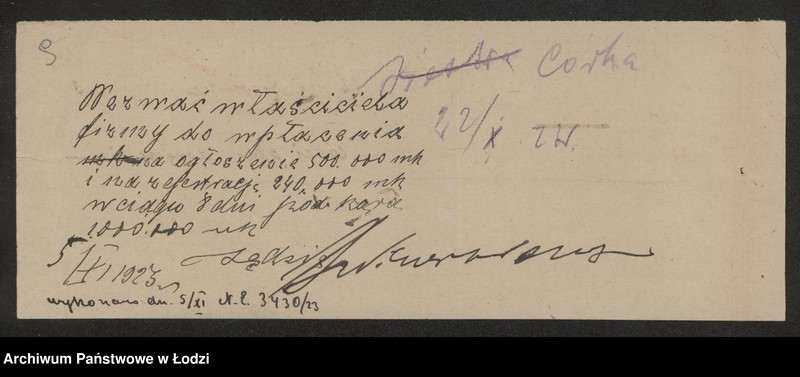 9
siostra Córka
22/X
Wezwać właściciela
firmy do wpłacenia
na ogłoszenie 500.000 mk
i na rejestrację 240.000 mk
w ciągu 8 dni pod karą
1000.000 mk
5/XI 1923 r. Sędzia
wykonano dn. 5/XI N.E. 3430/23
Archiwum Państwowe w Łodzi